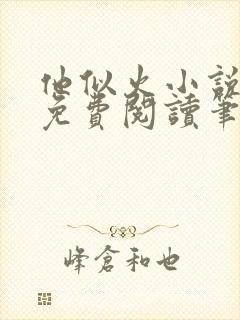 他似火小說
免費閱讀筆
峰倉和也